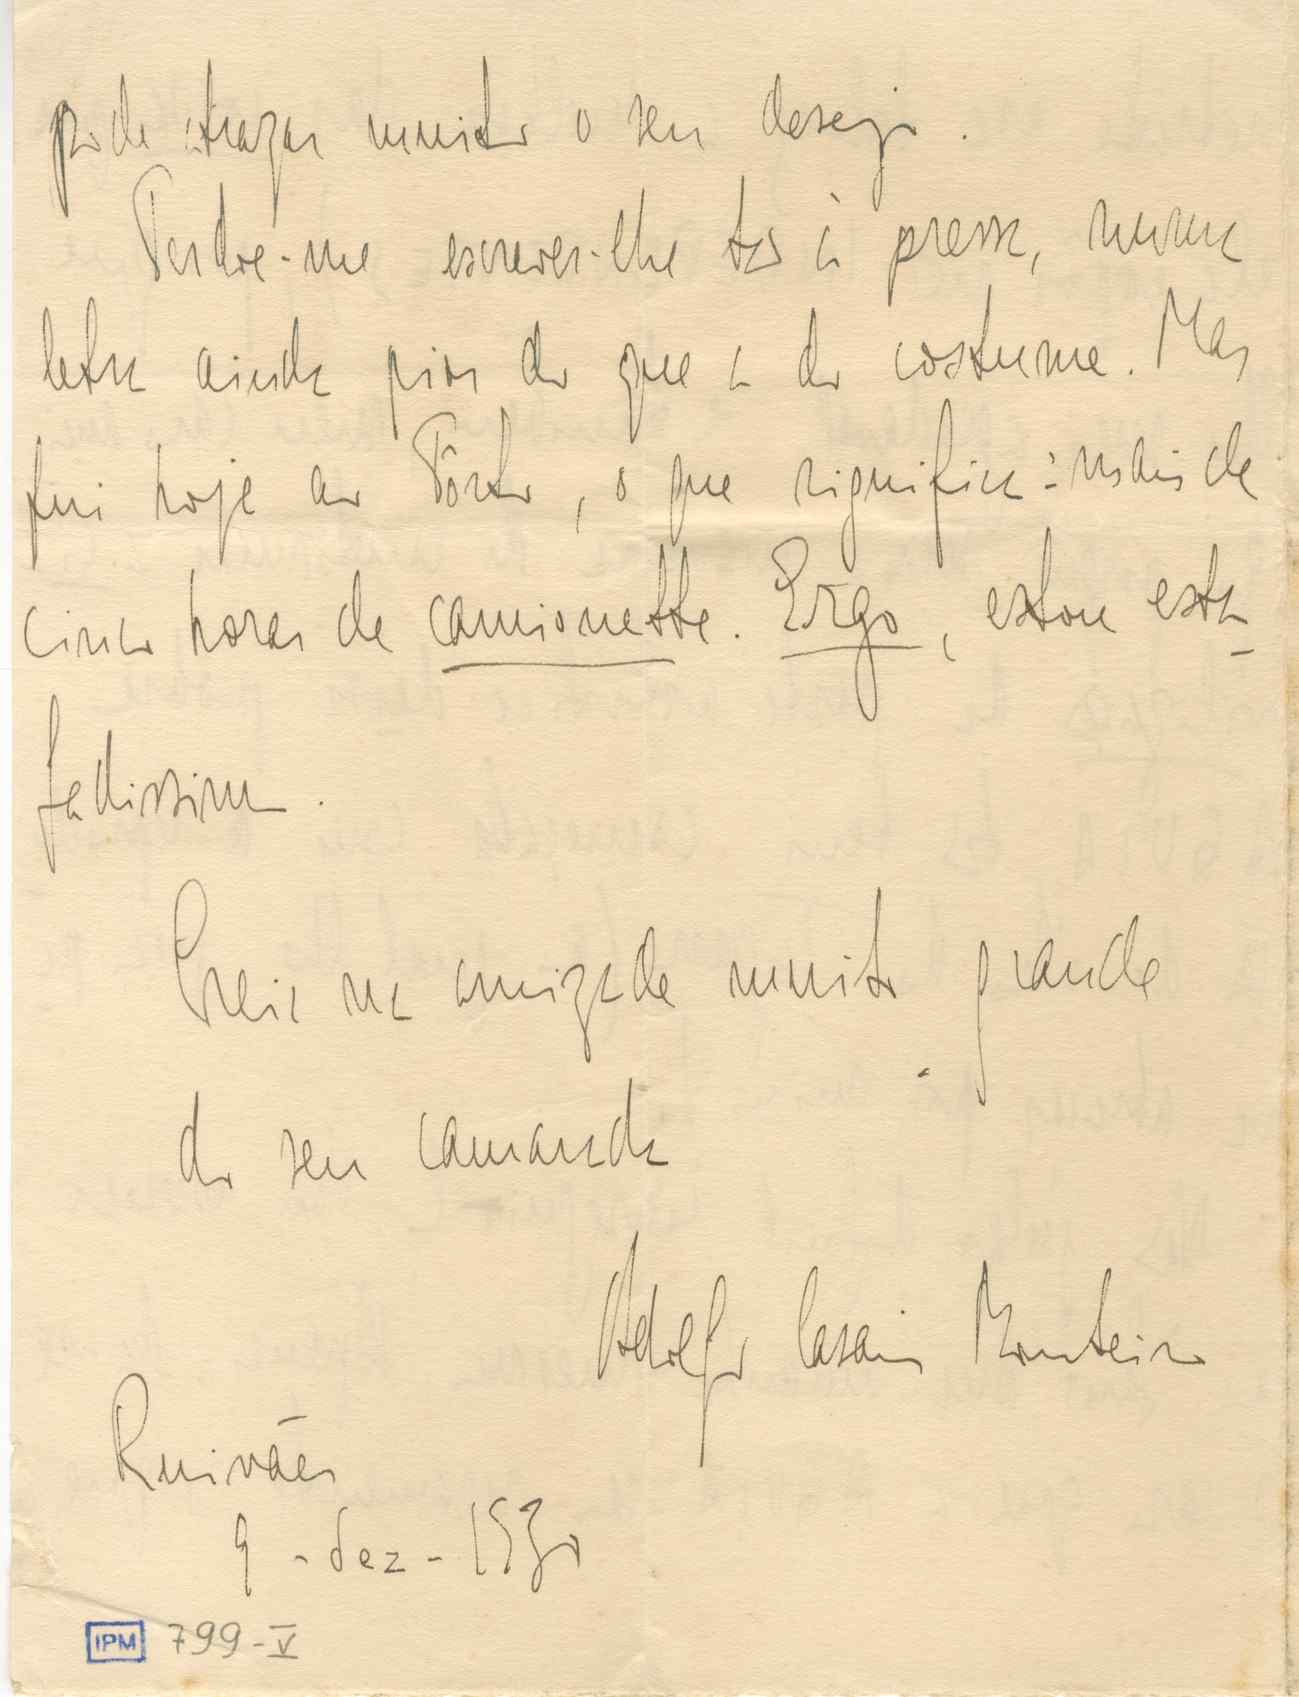 pode atrazar muito o seu desejo.
Perdôe-me escrever-lhe tão à pressa, numa
letra ainda pior do que a do costume. Mas
fui hoje ao Pôrto, o que significa: mais de
cinco horas de camionette. Ergo, estou esta-
fadissimo.
Creia na amizade muito grande
do seu camarada
Adolfo Casais Monteiro
Ruivães
9 - dez - 1930
IPM 799-V